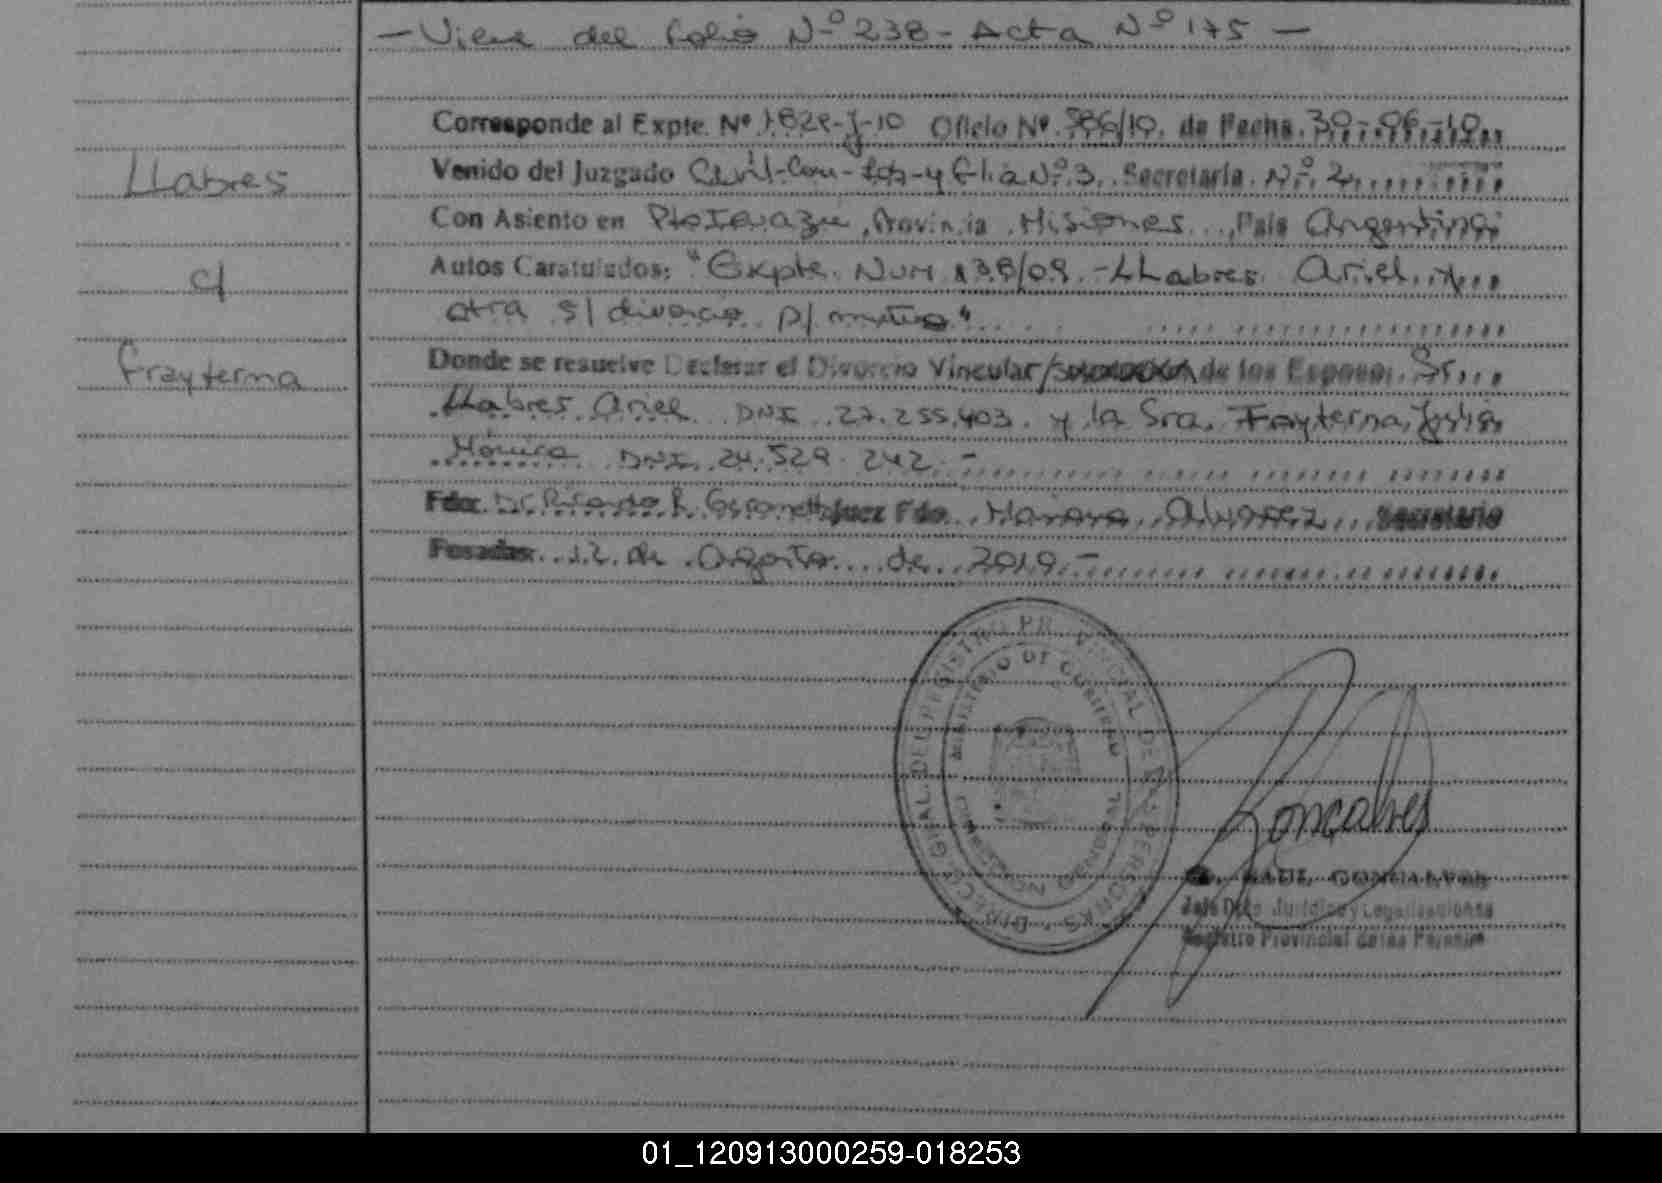 - Viene del folio Nº 238 - Acta Nº 175 -
Corresponde al Expte. Nº 1829-J-10 Oficio Nº 586/10. de Fecha. 30-06-10
Llabres
Venido del Juzgado Civil-Com-Lab-y flia Nº 3. Secretaría. Nº. 2
Con Asiento en Pto Iguazu, Provincia Misiones, País Argentina
c/
Autos Caratulados: "Expte. Num 138/09 - LLabres Ariel y
otra s/ divorcio p/ mutuo"
Frayterna
Donde se resuelve Declarar el Divorcio Vincular/ de los Esposos. Sr.
Llabres Ariel DNI 27.255.403. y la Sra. Frayterna, Julia
Mónica DNI. 24.529.242. -
Fdo. Dr. Ricardo R. Juez Fdo. Alvarez Secretario
Posadas 12 de Agosto de 2010.-
DIRECC. GRAL. DEL REGISTRO PROVINCIAL DE LAS PERSONAS
MINISTERIO DE GOBIERNO
Goncalves
RAUL GONCALVES
Jefe Dpto Jurídico y Legalizaciones
Registro Provincial de las Personas
01_120913000259-018253